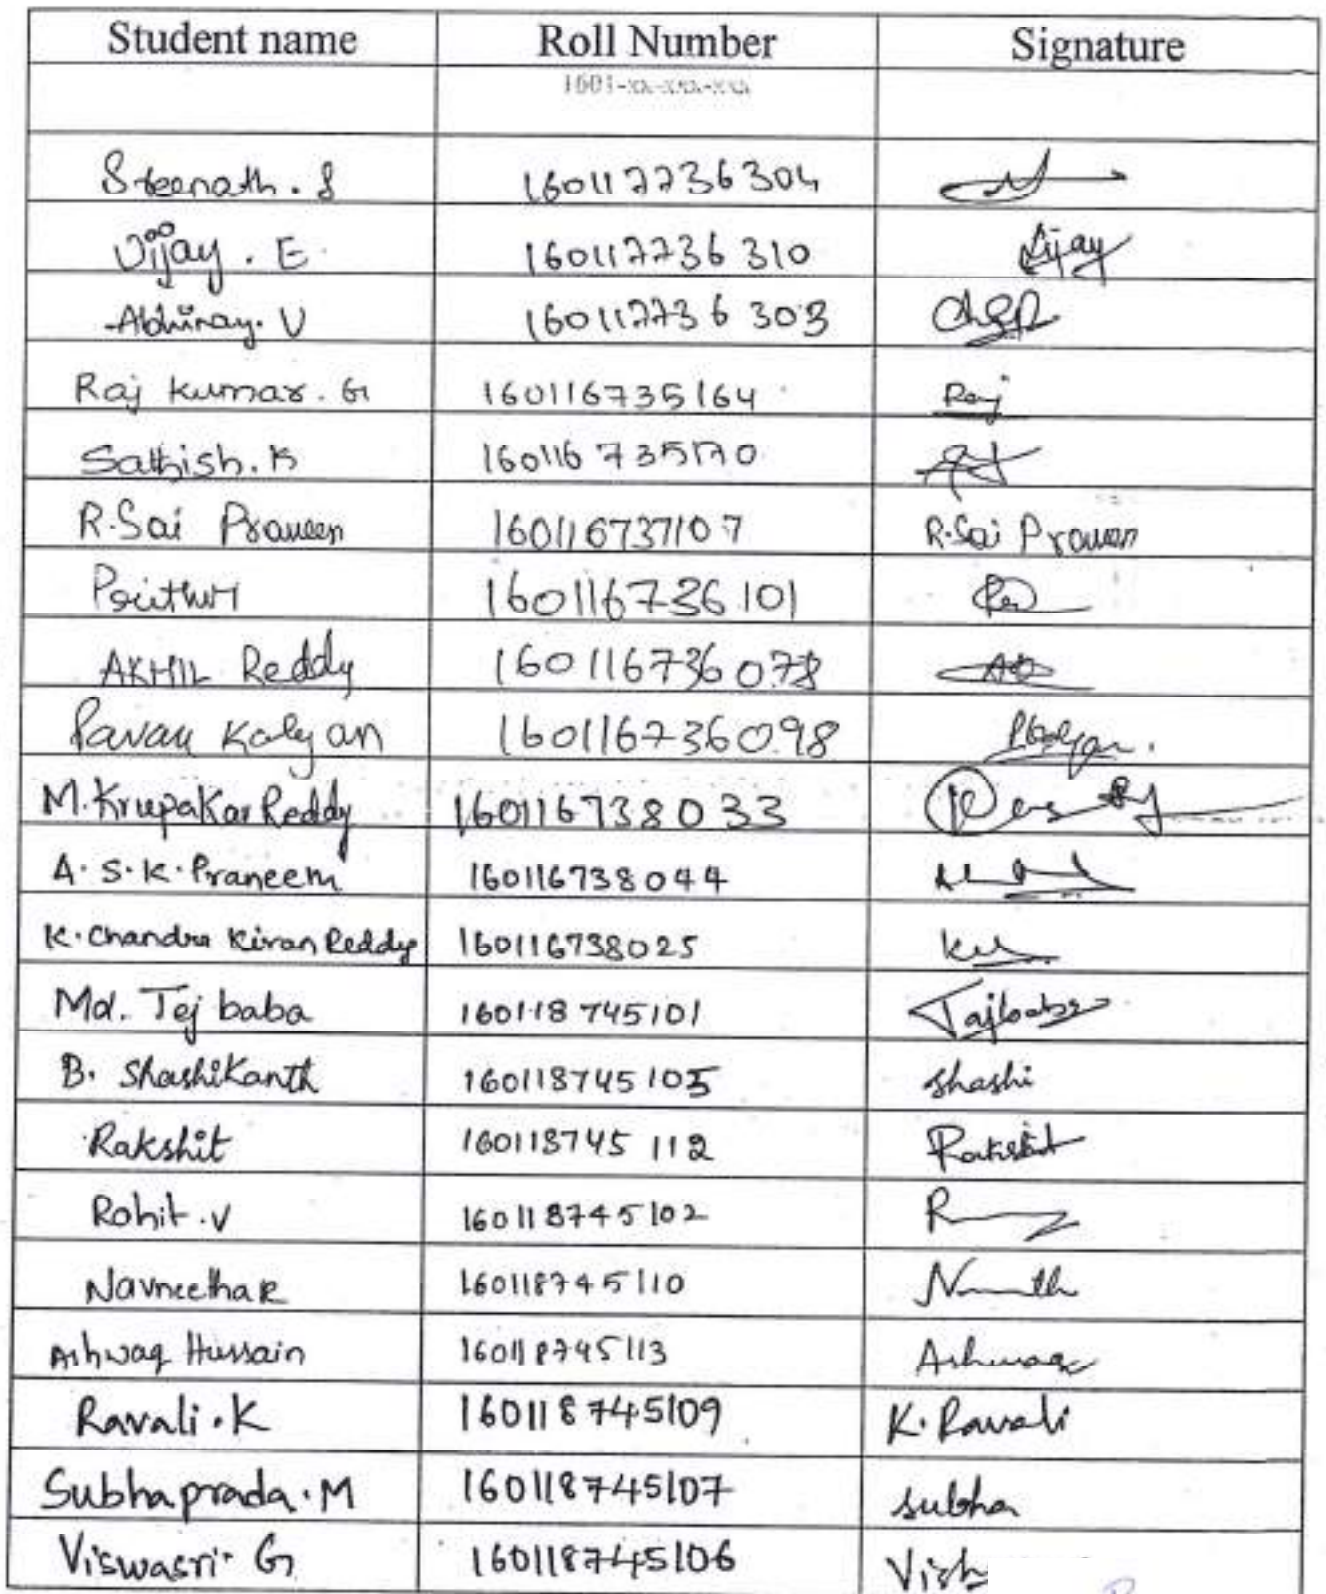 Student name Roll Number Signature
1601-xx-xxx-xxx
Sreenath. S 160117736304
Vijay. E 160117736310 Vijay
Abhinay. V 160117736303
Raj Kumar. G 160116735164 Raj
Sathish. K 160116735170
R. Sai Praveen 160116737107 R. Sai Praveen
Prithvi 160116736101
AKHIL Reddy 160116736078
Pavan Kalyan 160116736098 P Kalyan.
M. Krupakar Reddy 160116738033
A. S. K. Praneem 160116738044
K. Chandra Kiran Reddy 160116738025
Md. Tej baba 160118745101 Tajbaba
B. Shashikanth 160118745105 Shashi
Rakshit 160118745112 Rakshit
Rohit. V 160118745102
Navneetha R 160118745110
Ashwaq Hussain 160118745113 Ashwaq
Ravali. K 160118745109 K. Ravali
Subhaprada. M 160118745107 Subha
Viswasri. G 160118745106 Vish